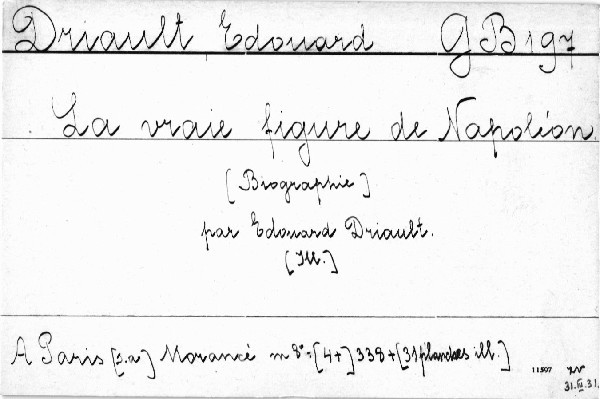 Driault Edouard GB 197
La vraie figure de Napoléon
[Biographie]
par Edouard Driault.
[Ill.]
A Paris [s.a] Morancé in 8°=[4+] 338+[31 planches ill.]
11507
31.III.31.